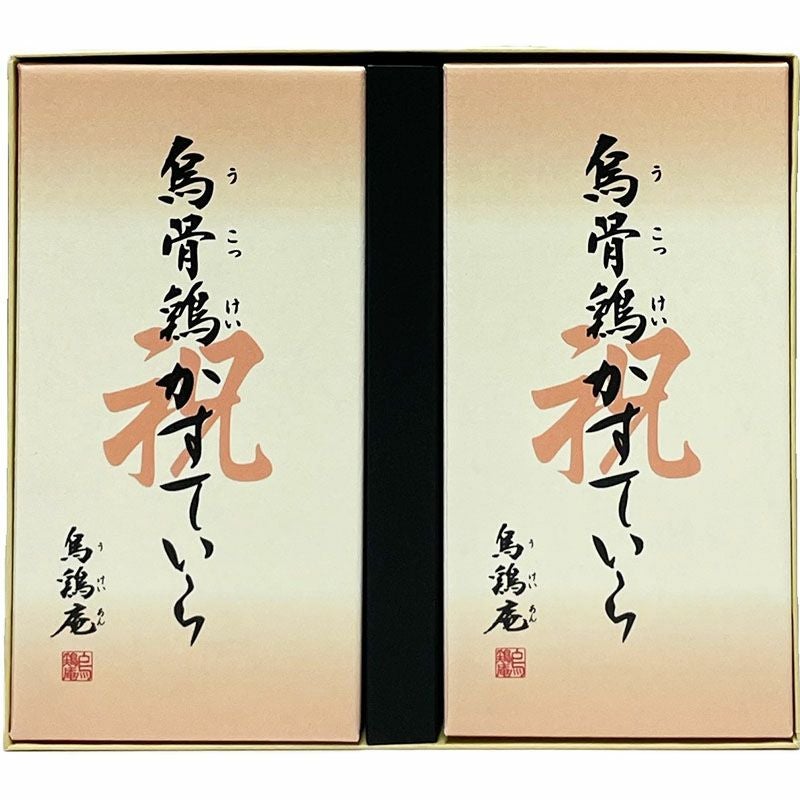 烏骨鶏かすていら
うこっけい
祝
烏鶏庵
うけいあん
烏骨鶏かすていら
うこっけい
祝
烏鶏庵
うけいあん